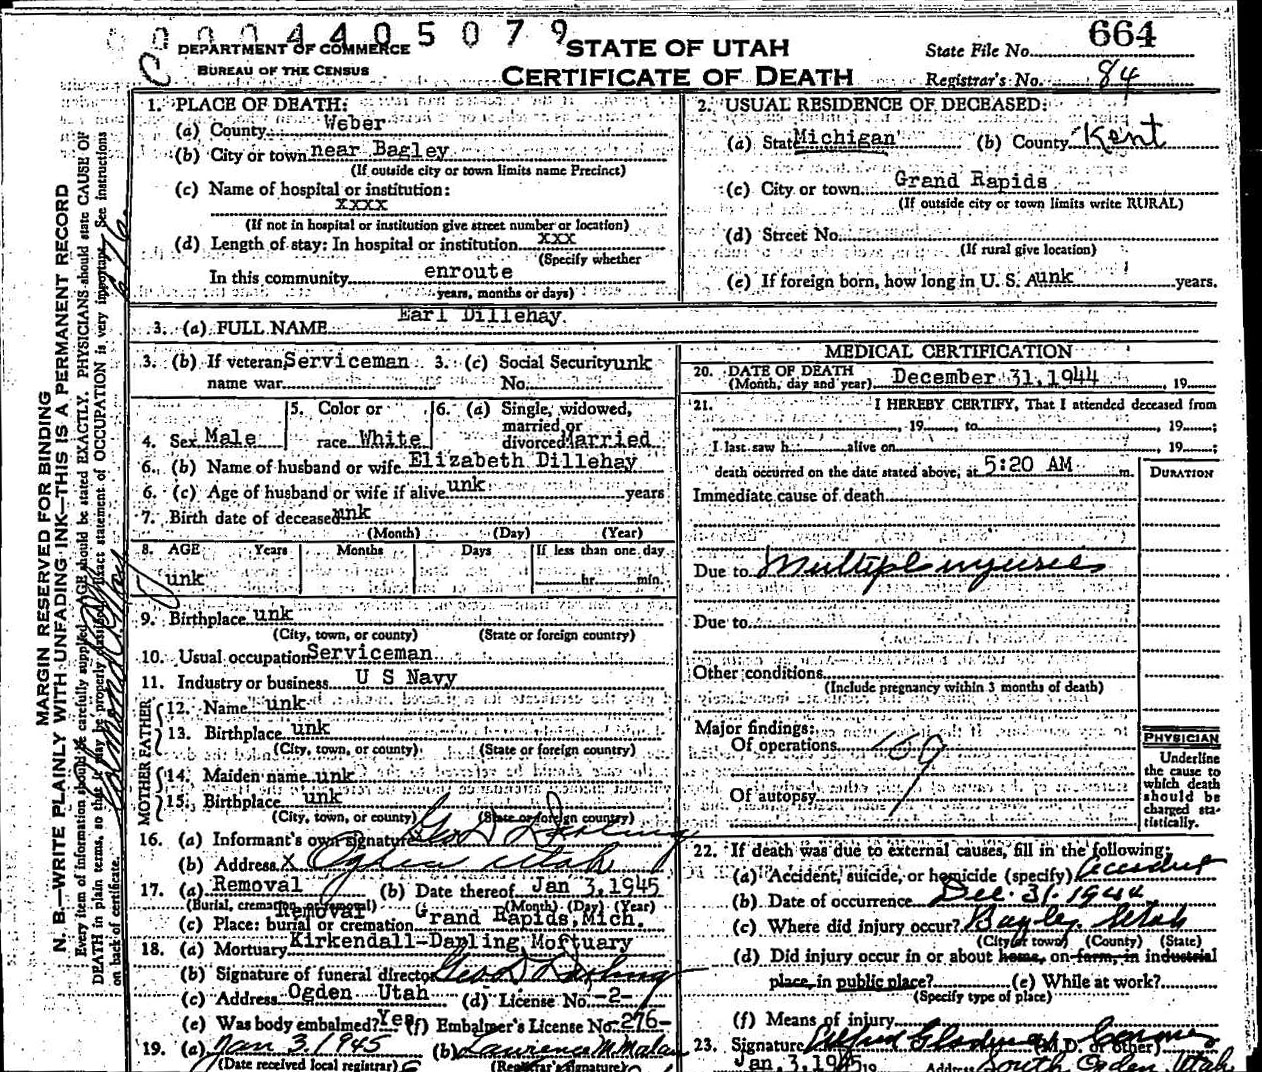 0004405079
DEPARTMENT OF COMMERCE
BUREAU OF THE CENSUS
C
STATE OF UTAH
CERTIFICATE OF DEATH
State File No. 664
Registrar's No. 84
MARGIN RESERVED FOR BINDING
N. B.—WRITE PLAINLY WITH UNFADING INK—THIS IS A PERMANENT RECORD
Every item of information should be carefully supplied. AGE should be stated EXACTLY. PHYSICIANS should state CAUSE OF
DEATH in plain terms, so that it may be properly classified. Exact statement of OCCUPATION is very important. See instructions
on back of certificate.
1. PLACE OF DEATH:
(a) County Weber
(b) City or town near Bagley
(If outside city or town limits name Precinct)
(c) Name of hospital or institution:
xxxx
(If not in hospital or institution give street number or location)
(d) Length of stay: In hospital or institution xxx
(Specify whether
In this community enroute
years, months or days)
2. USUAL RESIDENCE OF DECEASED:
(a) State Michigan (b) County Kent
(c) City or town Grand Rapids
(If outside city or town limits write RURAL)
(d) Street No.
(If rural give location)
(e) If foreign born, how long in U. S. A unk years.
3. (a) FULL NAME Earl Dillehay
3. (b) If veteran, Serviceman 3. (c) Social Security unk
name war No.
4. Sex Male 5. Color or race White 6. (a) Single, widowed, married or divorced Married
6. (b) Name of husband or wife Elizabeth Dillehay
6. (c) Age of husband or wife if alive unk years
7. Birth date of deceased unk
(Month) (Day) (Year)
8. AGE Years Months Days If less than one day
unk hr. min.
9. Birthplace unk
(City, town, or county) (State or foreign country)
10. Usual occupation Serviceman
11. Industry or business U S Navy
FATHER
12. Name unk
13. Birthplace unk
(City, town, or county) (State or foreign country)
MOTHER
14. Maiden name unk
15. Birthplace unk
(City, town, or county) (State or foreign country)
16. (a) Informant's own signature Geo D Darling
(b) Address x Ogden Utah
17. (a) Removal (b) Date thereof Jan 3, 1945
(Burial, cremation, or removal) (Month) (Day) (Year)
(c) Place: burial or cremation Removal Grand Rapids, Mich.
18. (a) Mortuary Kirkendall-Darling Mortuary
(b) Signature of funeral director Geo D Darling
(c) Address Ogden Utah (d) License No. -2-
(e) Was body embalmed? Yes (f) Embalmer's License No. 276-
19. (a) Jan 3. 1945 (b) Laurence M Malan
(Date received local registrar) (Registrar's signature)
MEDICAL CERTIFICATION
20. DATE OF DEATH
(Month, day and year) December 31, 1944, 19
21. I HEREBY CERTIFY, That I attended deceased from
, 19, to , 19;
I last saw h alive on , 19;
death occurred on the date stated above, at 5:20 AM m.
DURATION
Immediate cause of death
Due to Multiple injuries
Due to
Other conditions
(Include pregnancy within 3 months of death)
Major findings:
Of operations
169
Of autopsy
PHYSICIAN
Underline
the cause to
which death
should be
charged sta-
tistically.
22. If death was due to external causes, fill in the following:
(a) Accident, suicide, or homicide (specify) Accident
(b) Date of occurrence Dec. 31. 1944
(c) Where did injury occur? Bagley Utah
(City or town) (County) (State)
(d) Did injury occur in or about home, on farm, in industrial
place, in public place? (e) While at work?
(Specify type of place)
(f) Means of injury
23. Signature Coroner
(M.D. or other)
Jan 3, 1945 19 Address South Ogden, Utah